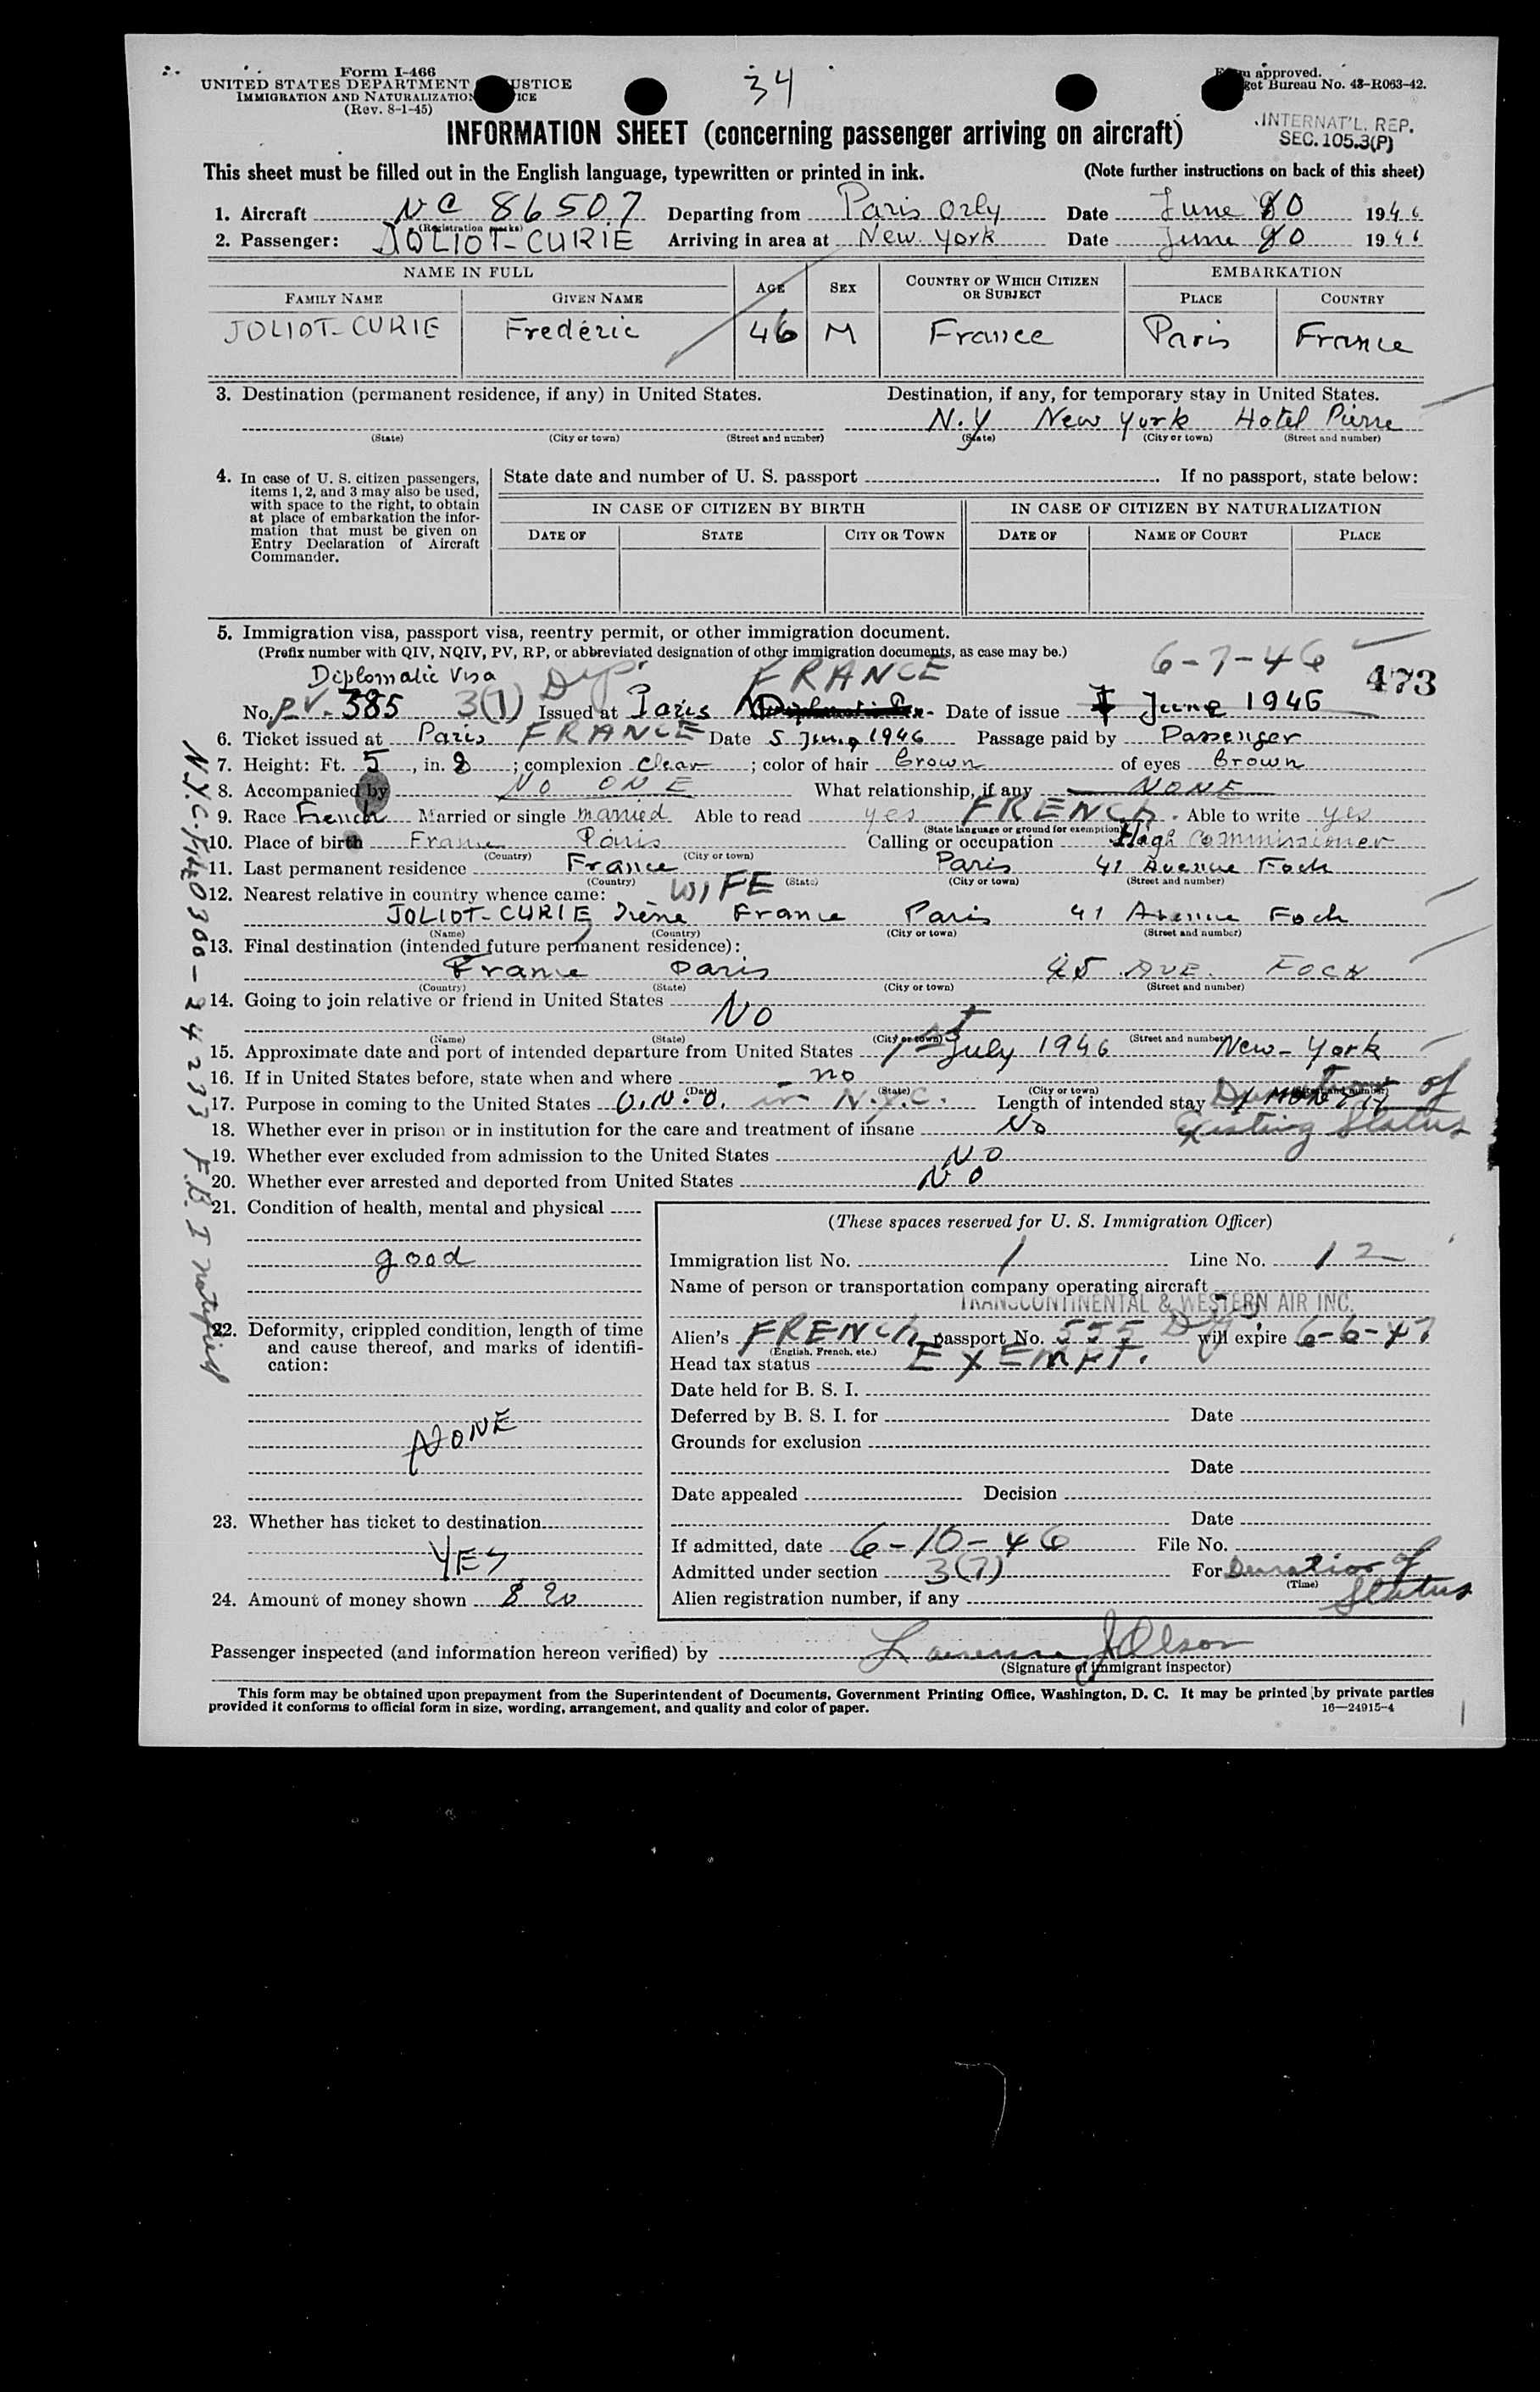 34
Form I-466
UNITED STATES DEPARTMENT USTICE
IMMIGRATION AND NATURALIZATION ICE
(Rev. 8-1-45)
m approved.
get Bureau No. 43-R063-42.
INTERNAT'L. REP.
SEC. 105.3(P)
INFORMATION SHEET (concerning passenger arriving on aircraft)
This sheet must be filled out in the English language, typewritten or printed in ink. (Note further instructions on back of this sheet)
1. Aircraft NC 86507 Departing from Paris Orly Date June 1946
(Registration marks)
2. Passenger: JOLIOT-CURIE Arriving in area at New York Date June 1946
NAME IN FULL AGE SEX COUNTRY OF WHICH CITIZEN OR SUBJECT EMBARKATION
FAMILY NAME GIVEN NAME PLACE COUNTRY
JOLIOT-CURIE Fredéric 46 M France Paris France
3. Destination (permanent residence, if any) in United States. Destination, if any, for temporary stay in United States.
N.Y New York Hotel Pierre
(State) (City or town) (Street and number) (State) (City or town) (Street and number)
4. In case of U. S. citizen passengers, items 1, 2, and 3 may also be used, with space to the right, to obtain at place of embarkation the information that must be given on Entry Declaration of Aircraft Commander.
State date and number of U. S. passport If no passport, state below:
IN CASE OF CITIZEN BY BIRTH IN CASE OF CITIZEN BY NATURALIZATION
DATE OF STATE CITY OR TOWN DATE OF NAME OF COURT PLACE
5. Immigration visa, passport visa, reentry permit, or other immigration document.
(Prefix number with QIV, NQIV, PV, RP, or abbreviated designation of other immigration documents, as case may be.)
6-7-46 473
Diplomatic Visa Dip FRANCE
No. PV. 385 3(7) Issued at Paris Date of issue June 1946
6. Ticket issued at Paris FRANCE Date 5 June 1946 Passage paid by Passenger
7. Height: Ft. 5, in. 8; complexion clear; color of hair brown of eyes brown
8. Accompanied by NO ONE What relationship, if any NONE
9. Race French Married or single married Able to read yes FRENCH. Able to write yes
(State language or ground for exemption)
10. Place of birth France Paris Calling or occupation High Commissioner
(Country) (City or town)
11. Last permanent residence France Paris 41 Avenue Foch
(Country) (State) (City or town) (Street and number)
12. Nearest relative in country whence came: WIFE
JOLIOT-CURIE Irène France Paris 41 Avenue Foch
(Name) (Country) (City or town) (Street and number)
13. Final destination (intended future permanent residence):
France Paris AVE. FOCH
(Country) (State) (City or town) (Street and number)
14. Going to join relative or friend in United States No
(Name) (State) (City or town) (Street and number)
15. Approximate date and port of intended departure from United States 1st July 1946 New-York
16. If in United States before, state when and where no
(Date) (State) (City or town) (Street and number)
17. Purpose in coming to the United States U.N.O. in N.Y.C. Length of intended stay Duration of
Existing Status
18. Whether ever in prison or in institution for the care and treatment of insane No
19. Whether ever excluded from admission to the United States NO
20. Whether ever arrested and deported from United States NO
21. Condition of health, mental and physical
good
22. Deformity, crippled condition, length of time and cause thereof, and marks of identification:
NONE
23. Whether has ticket to destination
YES
24. Amount of money shown $ 20
(These spaces reserved for U. S. Immigration Officer)
Immigration list No. 1 Line No. 12
Name of person or transportation company operating aircraft
TRANSCONTINENTAL & WESTERN AIR INC.
Alien's FRENCH passport No. 555 Dip will expire 6-6-47
(English, French, etc.)
Head tax status EXEMPT.
Date held for B. S. I.
Deferred by B. S. I. for Date
Grounds for exclusion
Date
Date appealed Decision
Date
If admitted, date 6-10-46 File No.
Admitted under section 3(7) For Duration of
(Time)
Status
Alien registration number, if any
Passenger inspected (and information hereon verified) by Olson
(Signature of immigrant inspector)
This form may be obtained upon prepayment from the Superintendent of Documents, Government Printing Office, Washington, D. C. It may be printed by private parties
provided it conforms to official form in size, wording, arrangement, and quality and color of paper. 16—24915-4
N.Y.C. 0300-24233 F.B.I notified